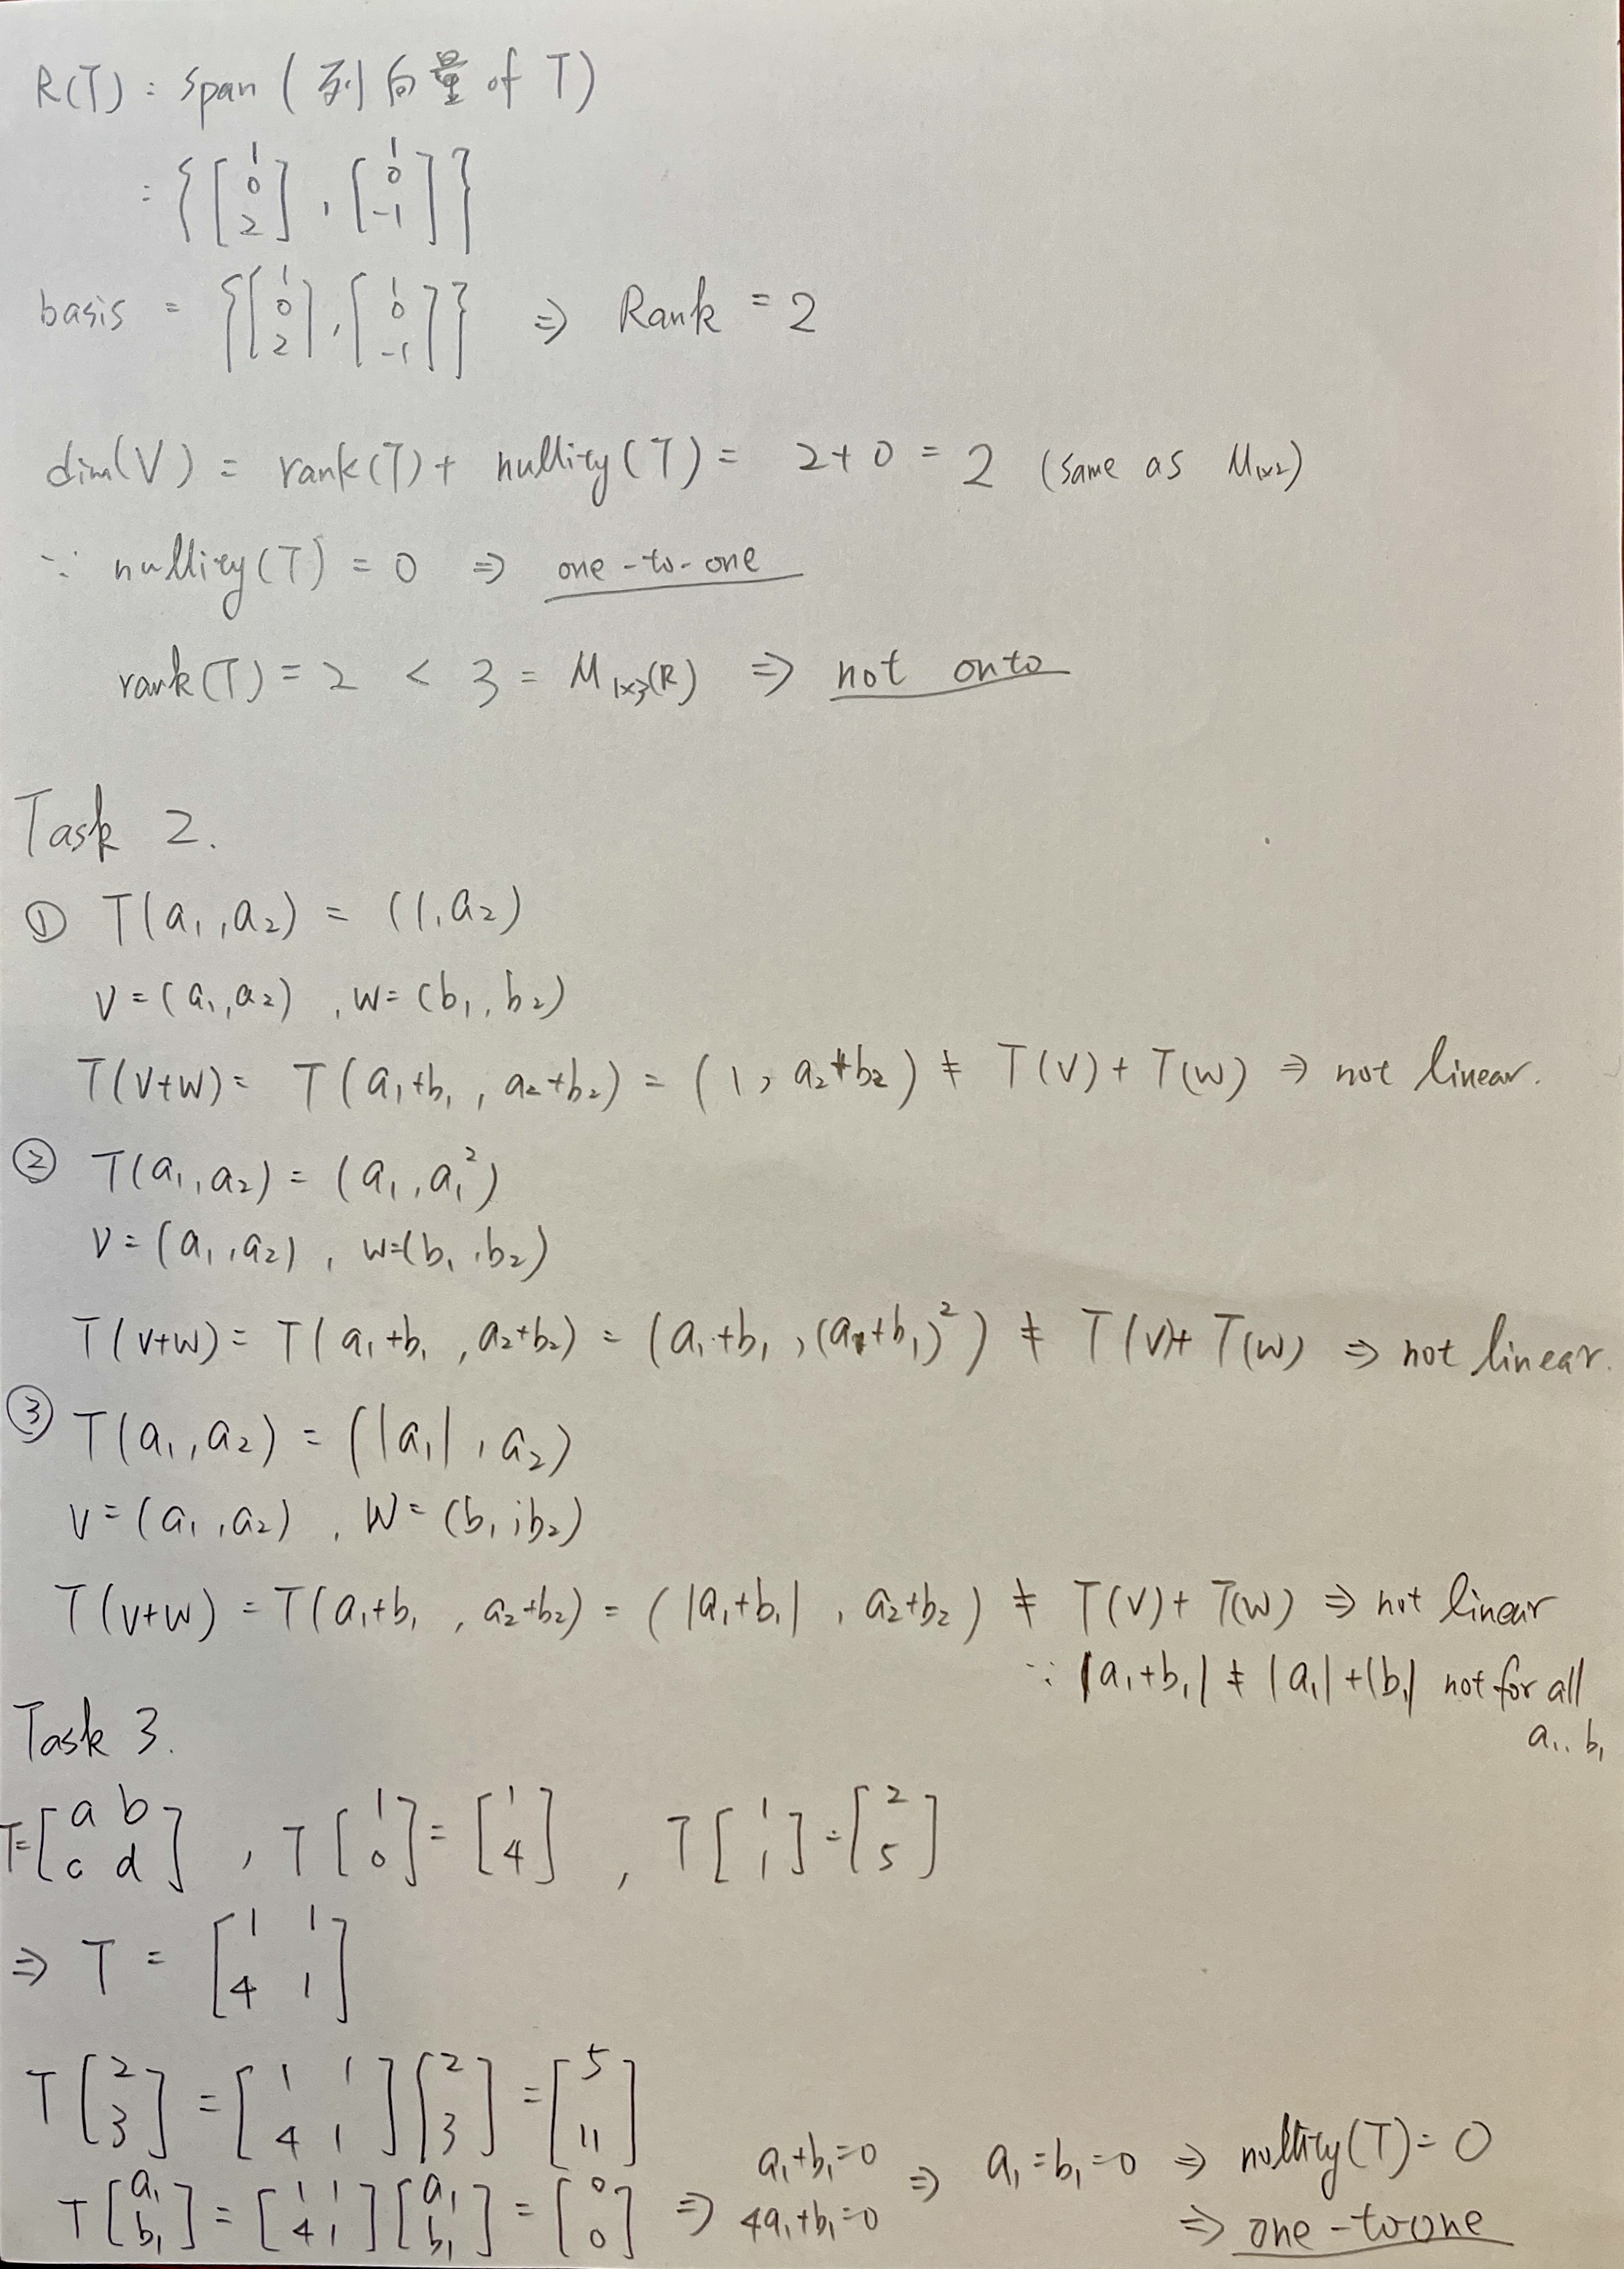 R(T) : span ( 列向量 of T )
= { [1 0 2], [1 0 -1] }
basis = { [1 0 2], [1 0 -1] } ⇒ Rank = 2
dim(V) = rank(T) + nullity(T) = 2+0 = 2 (same as M₁ₓ₂)
∵ nullity(T) = 0 ⇒ one-to-one
rank(T) = 2 < 3 = M₁ₓ₃(R) ⇒ not onto
Task 2.
① T(a₁, a₂) = (1, a₂)
V = (a₁, a₂) , W = (b₁, b₂)
T(V+W) = T(a₁+b₁, a₂+b₂) = (1, a₂+b₂) ≠ T(V) + T(W) ⇒ not linear.
② T(a₁, a₂) = (a₁, a₁²)
V = (a₁, a₂) , W = (b₁, b₂)
T(V+W) = T(a₁+b₁, a₂+b₂) = (a₁+b₁, (a₁+b₁)²) ≠ T(V) + T(W) ⇒ not linear.
③ T(a₁, a₂) = (|a₁|, a₂)
V = (a₁, a₂) , W = (b₁, b₂)
T(V+W) = T(a₁+b₁, a₂+b₂) = (|a₁+b₁|, a₂+b₂) ≠ T(V) + T(W) ⇒ not linear
∵ |a₁+b₁| ≠ |a₁|+|b₁| not for all
a₁.. b₁
Task 3.
T = [a b; c d] , T [1 0] = [1 4] , T [1 1] = [2 5]
⇒ T = [1 1; 4 1]
T [2 3] = [1 1; 4 1] [2 3] = [5 11]
T [a₁ b₁] = [1 1; 4 1] [a₁ b₁] = [0 0] ⇒ a₁+b₁=0 4a₁+b₁=0 ⇒ a₁=b₁=0 ⇒ nullity(T) = 0
⇒ one-to-one